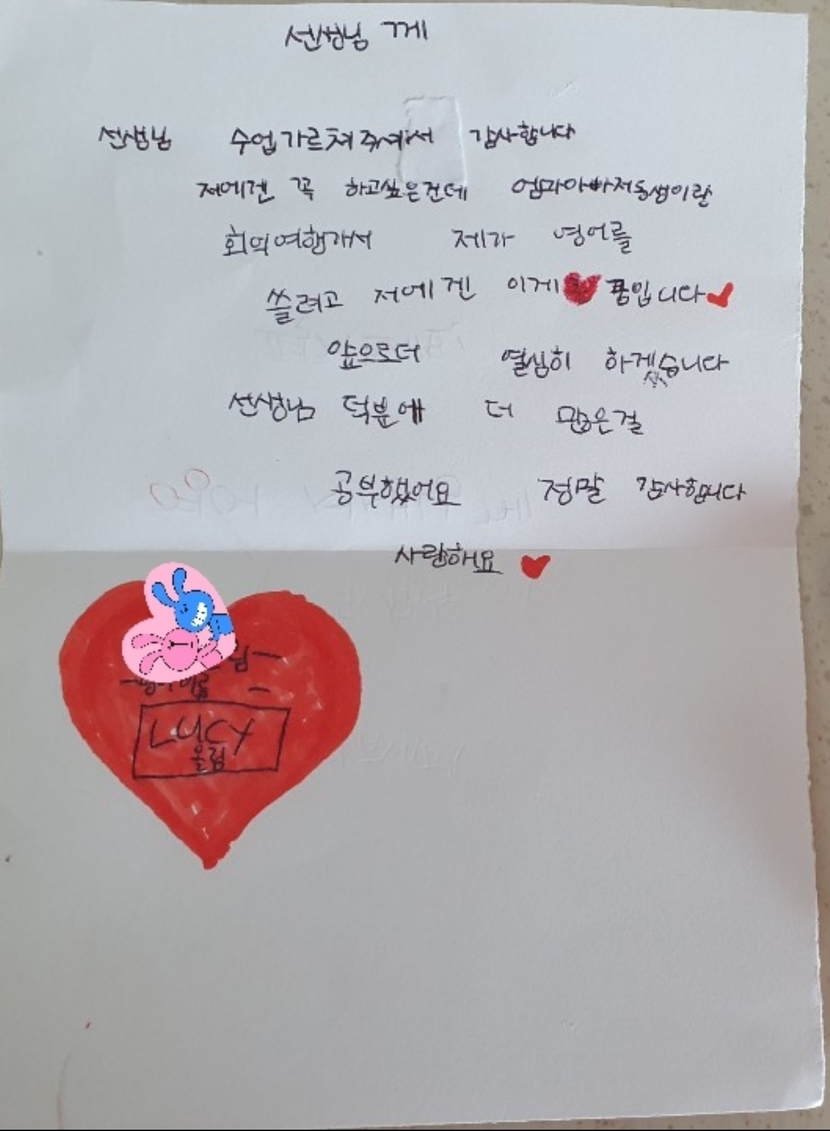 선생님 께
선생님 수업가르쳐주셔서 감사합니다
저에겐 꼭 하고싶은건데 엄마아빠저동생이랑
회의여행가서 제가 영어를
쓸려고 저에겐 이게 품입니다
앞으로더 열심히 하겠습니다
선생님 덕분에 더 많은걸
공부했어요 정말 감사합니다
사랑해요
님
LUCY
올림